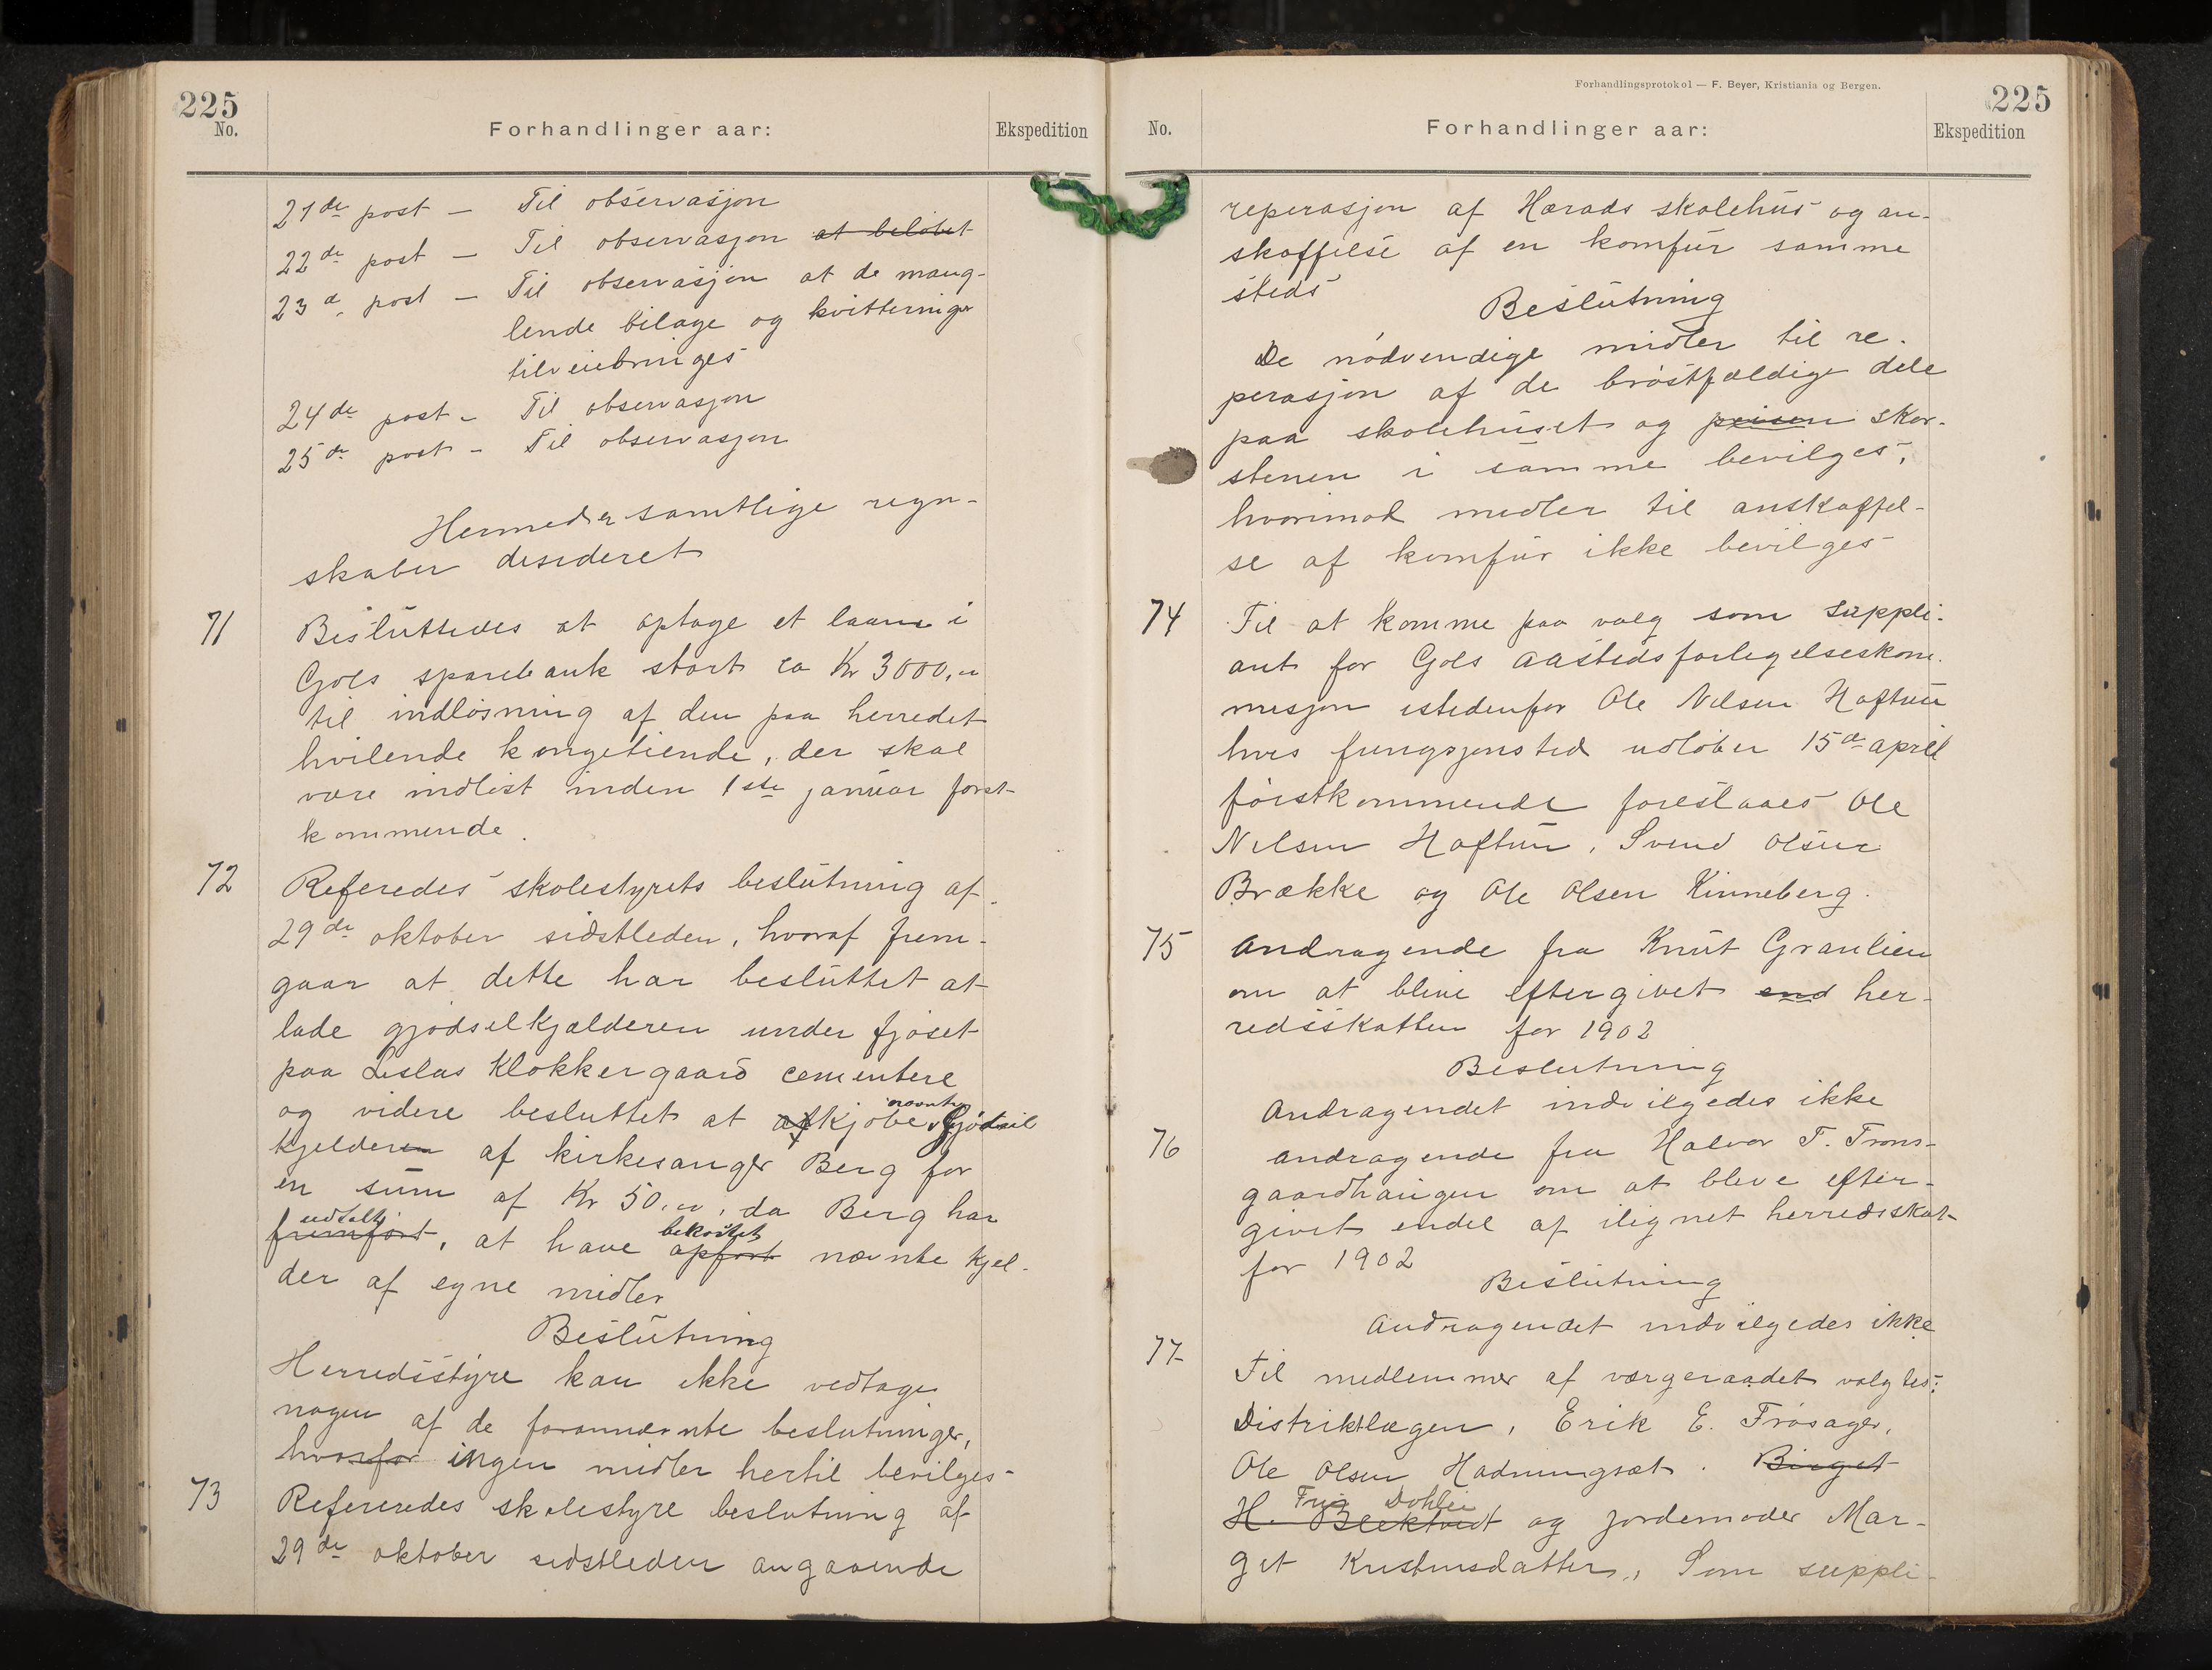 225
No.
Forhandlinger aar:
Ekspedition
21de post — Til observasjon
22de post — Til observasjon at beløbet
23d. post — Til observasjon at de mang-
lende bilage og kvitteringer
tilveiebringes
24de post - Til observasjon
25de post - Til observasjon
Hermed er samtlige regn-
skaber desideret
71 Besluttedes at optage et laan i
Gols sparebank stort ca Kr 3000,00
til indløsning af den paa herredet
hvilende kongetiende, der skal
være indløst inden 1ste januar først-
kommende.
72 Referedes skolestyrets beslutning af
29de oktober sidstleden, hvoraf frem-
gaar at dette har besluttet at
lade gjødselkjælderen under fjøset
paa Leslas Klokkergaard cementere
og videre besluttet at afkjøbe nævnte gjødsel
kjelderen af kirkesanger Berg for
en sum af Kr 50,00, da Berg har
udtalt
fremført, at have bekostet opført nævnte kjel-
der af egne midler
Beslutning
Herredsstyre kan ikke vedtage
nogen af de forannævnte beslutninger,
hvorfor ingen midler hertil bevilges-
73 Refereredes skolestyre beslutning af
29de oktober sidstleden angaaende
Forhandlingsprotokol — F. Beyer, Kristiania og Bergen.
225
No.
Forhandlinger aar:
Ekspedition
reperasjon af Herads skolehus og an-
skaffelse af en komfur samme
steds
Beslutning
De nødvendige midler til re-
perasjon af de brøstfældige dele
paa skolehuset og peisen skor-
stenen i samme bevilges,
hvorimod midler til anskaffel-
se af komfur ikke bevilges
74 Til at komme paa valg som suppli-
ant for Gols aastedsforligelseskom-
misjon istedenfor Ole Nilsen Haftun
hvis fungsjonstid udløber 15de april
førstkommende foreslaaes Ole
Nilsen Haftun, Svend Olsen
Brække og Ole Olsen Kinneberg.
75 Andragende fra Knut Granlien
om at blive eftergivet end her-
redsskatten for 1902
Beslutning
Andragendet indvilgedes ikke
76 Andragende fra Halvor T. Trøns-
gaardhaugen om at bleve efter-
givet endel af ilignet herredsskat
for 1902
Beslutning
Andragendet indvilgedes ikke
77 Til medlemmer af værgeraadet valgtes:
Distriktlægen, Erik E. Frøsager,
Ole Olsen Hadningsæt. Birget
Fru Dohlie
H. Blektvedt og jordemoder Mar-
git Kristensdatter, Som suppli-